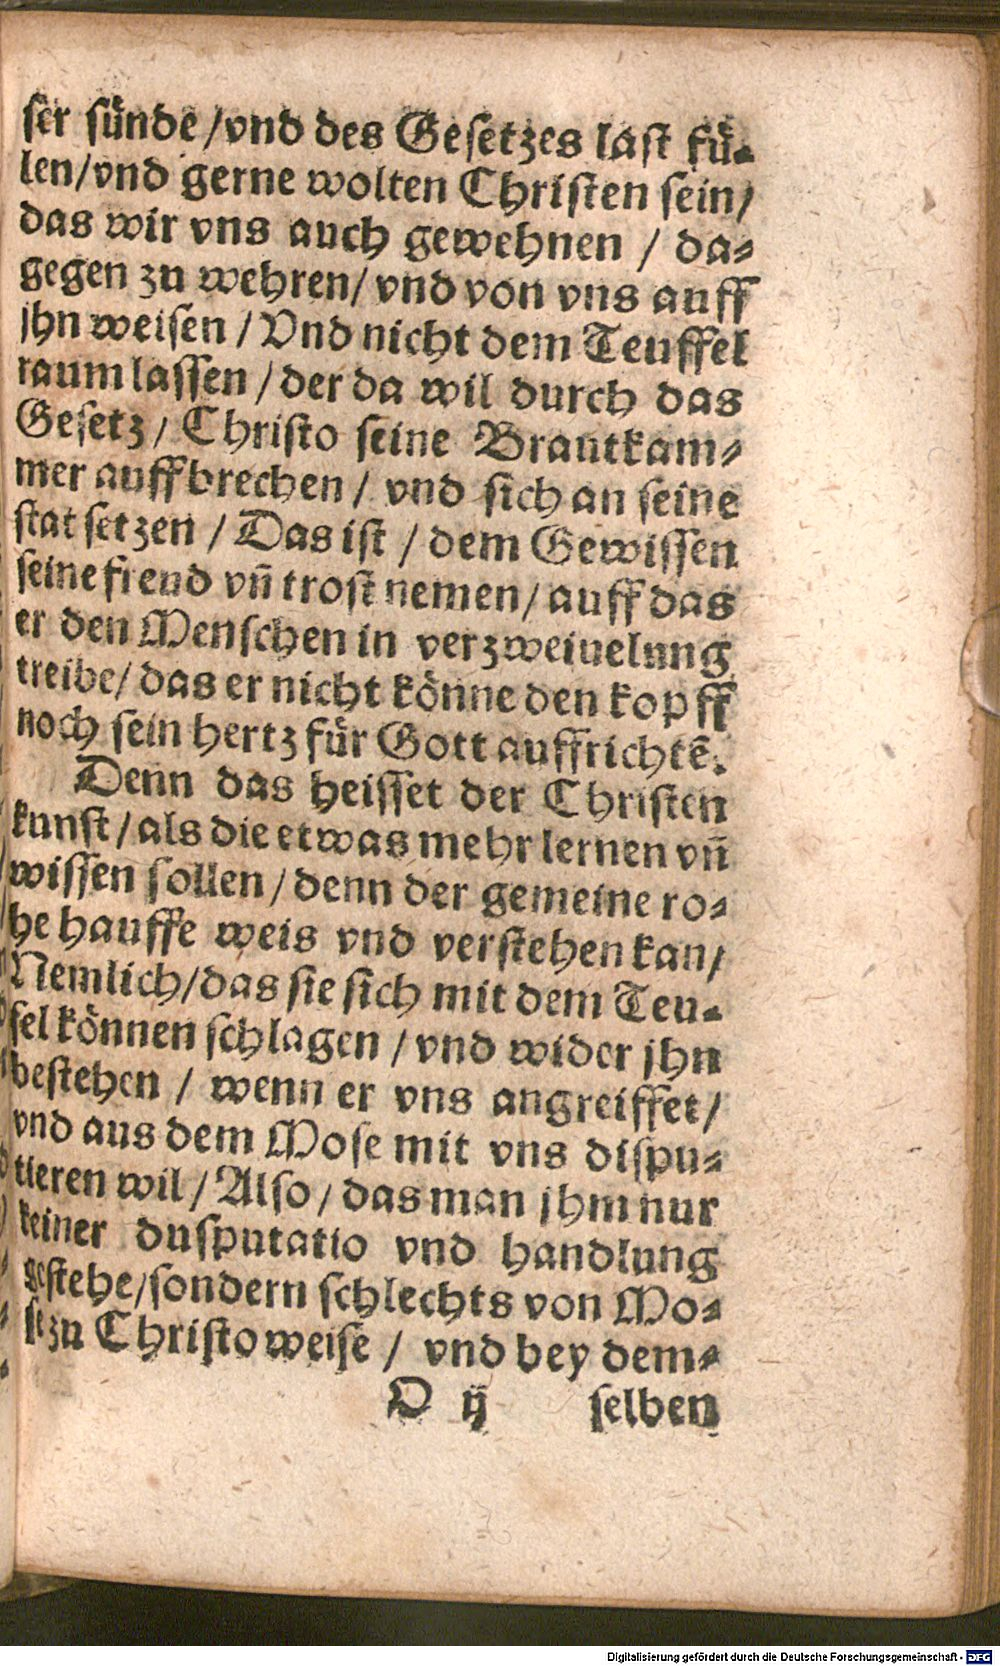 ser sünde /vnd des Gesetzes last fü-
len/vnd gerne wolten Christen sein/
das wir vns auch gewehnen / da-
gegen zu wehren/ vnd von vns auff
jhn weisen / Vnd nicht dem Teuffel
raum lassen / der da wil durch das
Gesetz / Christo seine Brautkam-
mer auffbrechen / vnd sich an seine
stat setzen / Das ist / dem Gewissen
seine freud vn̄ trost nemen/ auff das
er den Menschen in verzweiuelung
treibe/ das er nicht könne den kopff
noch sein hertz für Gott auffrichtē.
Denn das heisset der Christen
kunst / als die etwas mehr lernen vn̄
wissen sollen / denn der gemeine ro-
he hauffe weis vnd verstehen kan/
Nemlich/das sie sich mit dem Teu-
fel können schlagen / vnd wider jhn
bestehen / wenn er vns angreiffet/
vnd aus dem Mose mit vns dispu-
tieren wil / Also / das man jhm nur
keiner dusputatio vnd handlung
gestehe/sondern schlechts von Mo-
se zu Christo weise / vnd bey dem-
D ij selben
Digitalisierung gefördert durch die Deutsche Forschungsgemeinschaft - DFG